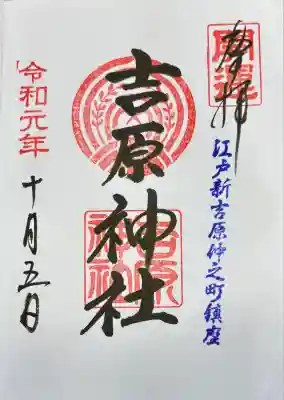 開運
奉拝
江戸新吉原仲之町鎮座
吉原神社
吉原神社
令和元年
十月五日